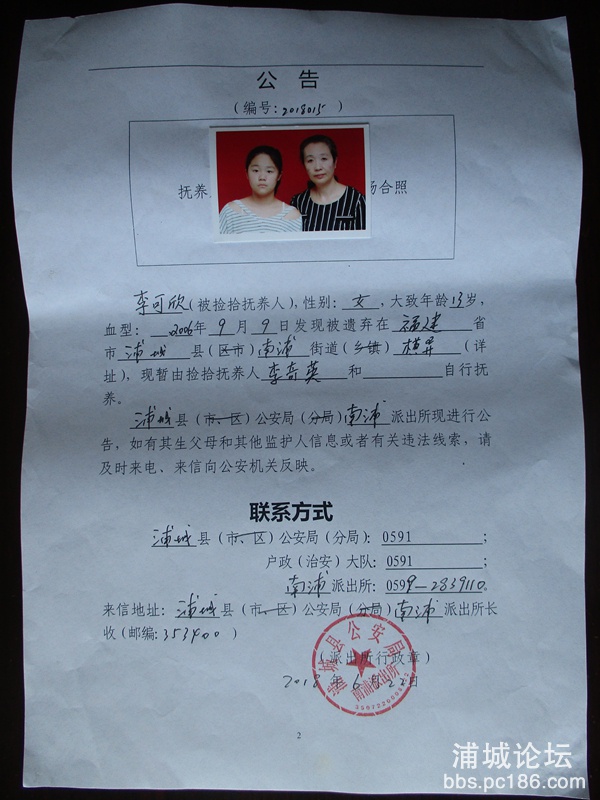 公 告
（编号：2018015）
抚养 场合照
李可欣（被捡拾抚养人），性别：女，大致年龄13岁，
血型： 2006年9月9日发现被遗弃在福建省
市浦城县（区市）南浦街道（乡镇）横界（详
址），现暂由捡拾抚养人李奇英和 自行抚
养。
浦城县（市、区）公安局（分局）南浦派出所现进行公
告，如有其生父母和其他监护人信息或者有关违法线索，请
及时来电、来信向公安机关反映。
联系方式
浦城县（市、区）公安局（分局）：0591 ；
户政（治安）大队：0591 ；
南浦派出所：0599-2839110。
来信地址：浦城县（市、区）公安局（分局）南浦派出所长
收（邮编：353400）
（派出所行政章）
浦城县公安局
南浦派出所
2018年6月22日
2
浦城论坛
bbs.pc186.com